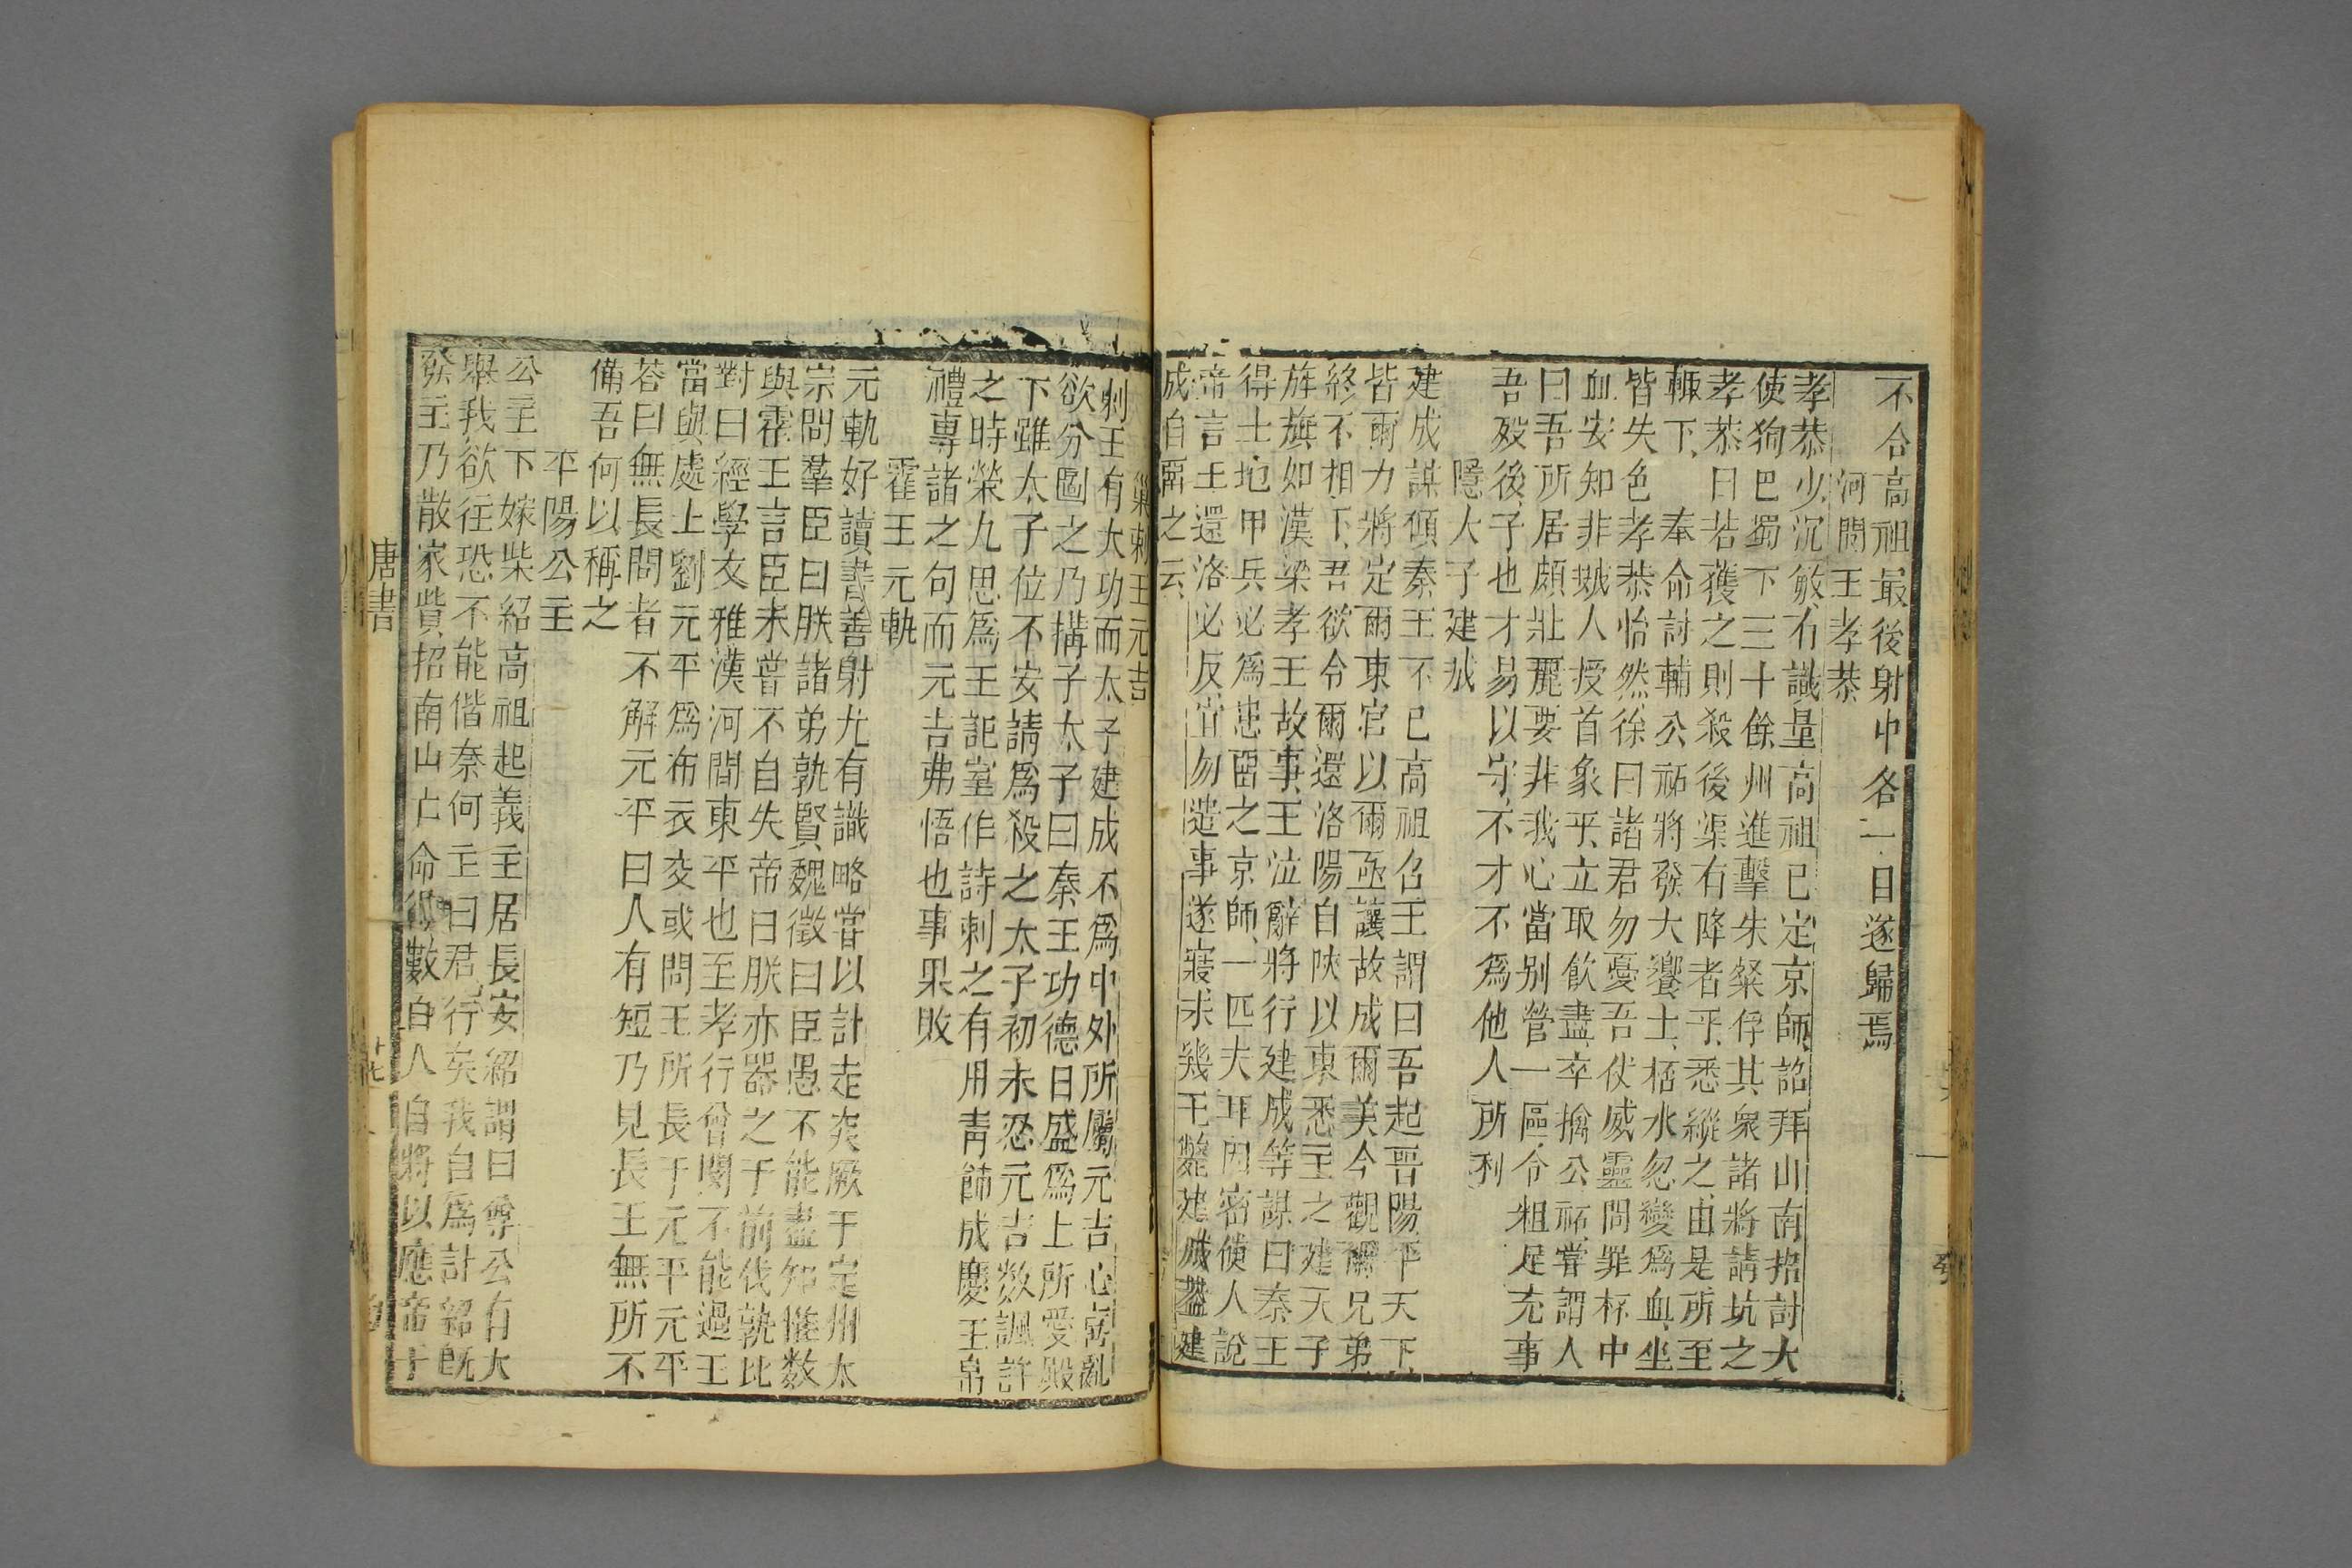 不合高祖最後射中各一目遂歸焉
河間王孝恭
孝恭少沉敏有識量高祖已定京師詔拜山南招討大
使狥巴蜀下三十餘州進擊朱粲俘其衆諸將請坑之
孝恭曰若獲之則殺後渠有降者乎悉縱之由是所至
輒下 奉命討輔公祏將發大饗士桮水忽變爲血坐
皆失色孝恭怡然徐曰諸君勿憂吾仗威靈問罪杯中
血安知非賊人授首象乎立取飲盡卒擒公祏嘗謂人
曰吾所居頗壯麗要非我心當别營一區令粗足充事
吾歿後子也才易以守不才不爲他人所利
隱太子建成
建成謀傾秦王不已高祖召王謂曰吾起晋陽平天下
皆爾力將定爾東宮以爾亟讓故成爾美今觀爾兄弟
終不相下吾欲令爾還洛陽自陜以東悉主之建天子
旌旗如漢梁孝王故事王泣辭將行建成等謀曰秦王
得土地甲兵必爲患留之京師一匹夫耳因密使人說
帝言王還洛必反宜勿遣事遂寢未幾王斃建成葢建
成自取之云
巢剌王元吉
剌王有大功而太子建成不爲中外所屬元吉心害亂
欲分圖之乃搆子太子曰秦王功德日盛爲上所愛殿
下雖太子位不安請爲殺之太子初未忍元吉数諷許
之時榮九思爲王記室作詩刺之有用青飾成慶王帛
禮專諸之句而元吉弗悟也事果敗
霍王元軌
元軌好讀書善射尤有識略嘗以計走突厥于定州太
宗問羣臣曰朕諸弟孰賢魏徵曰臣愚不能盡知惟数
與霍王言臣未嘗不自失帝曰朕亦器之于前代孰比
對曰經學文雅漢河間東平也至孝行曾閔不能過王
當與處上劉元平爲布衣交或問王所長于元平元平
荅曰無長問者不解元平曰人有短乃見長王無所不
備吾何以稱之
平陽公主
公主下嫁柴紹高祖起義主居長安紹謂曰尊公有大
舉我欲往恐不能偕奈何主曰君行矣我自爲計紹旣
發主乃散家貲招南山亡命得數百人自將以應帝于
唐書
十七